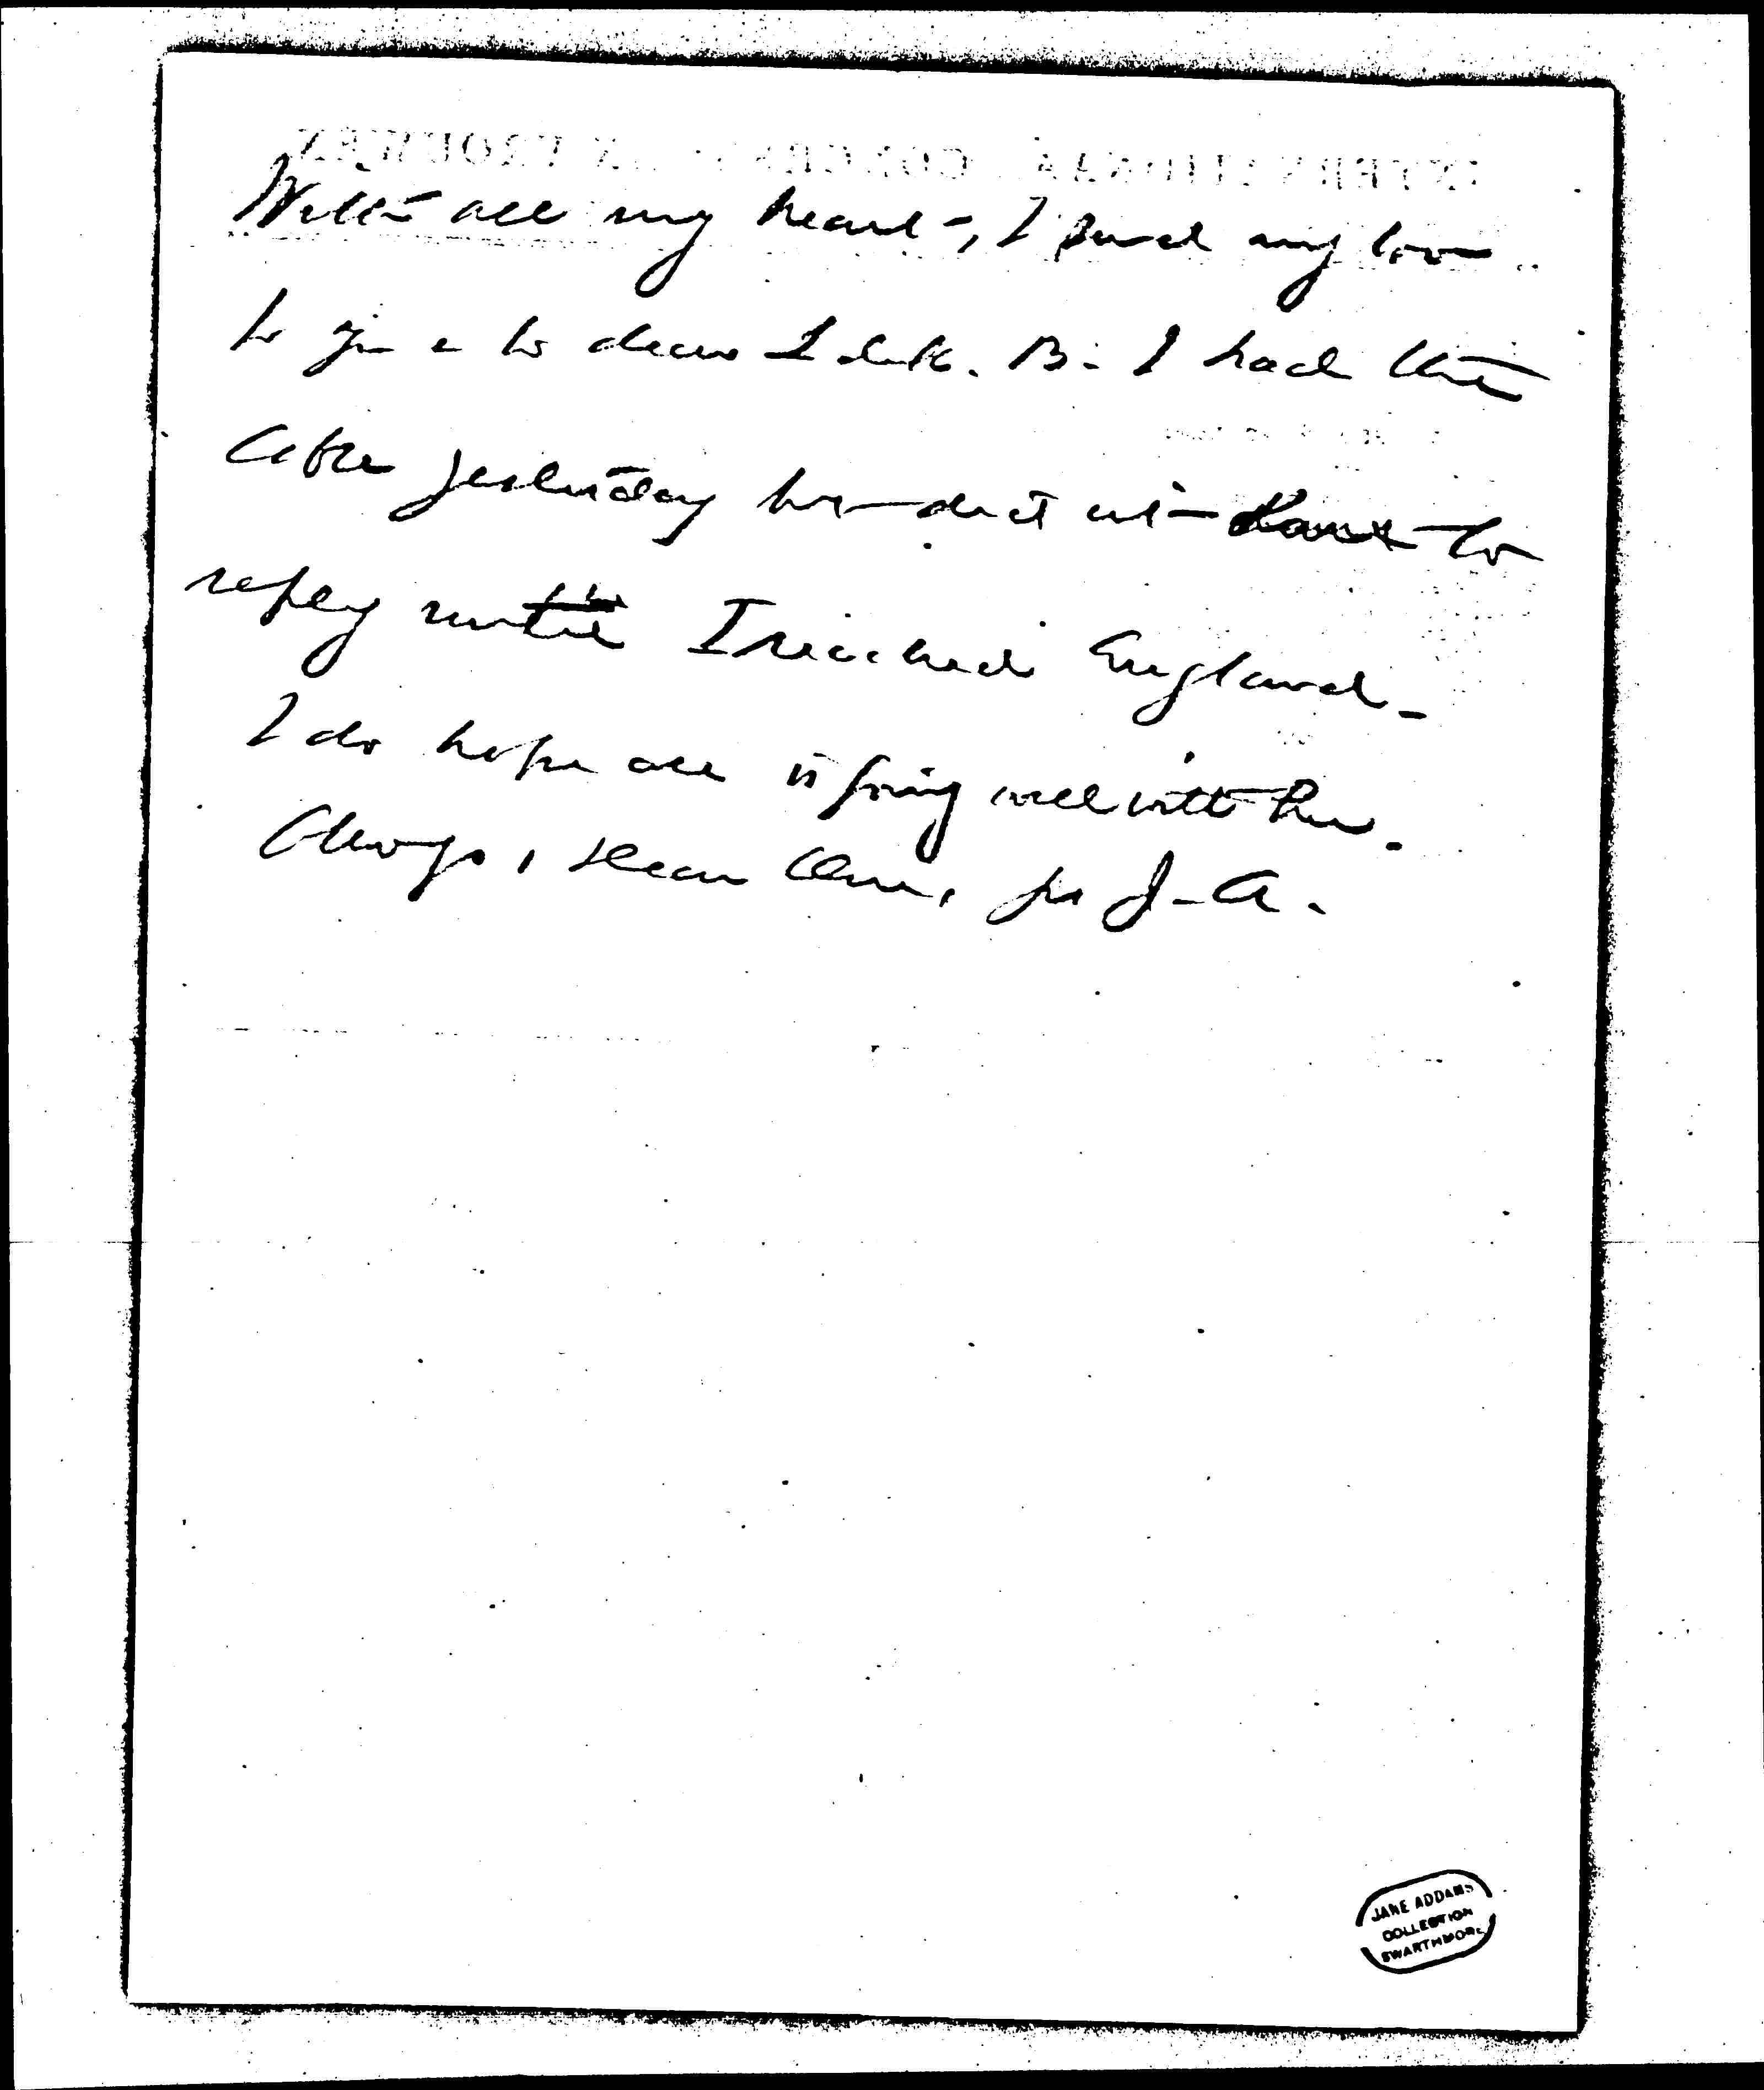 With all my heart, I send my love
to you & to dear B. I had the
cable yesterday but did not dare to
reply until I reached England -
I do hope all is going well with her.
Always, dear One, yrs J. A.
JANE ADDAMS
COLLECTION
SWARTHMORE